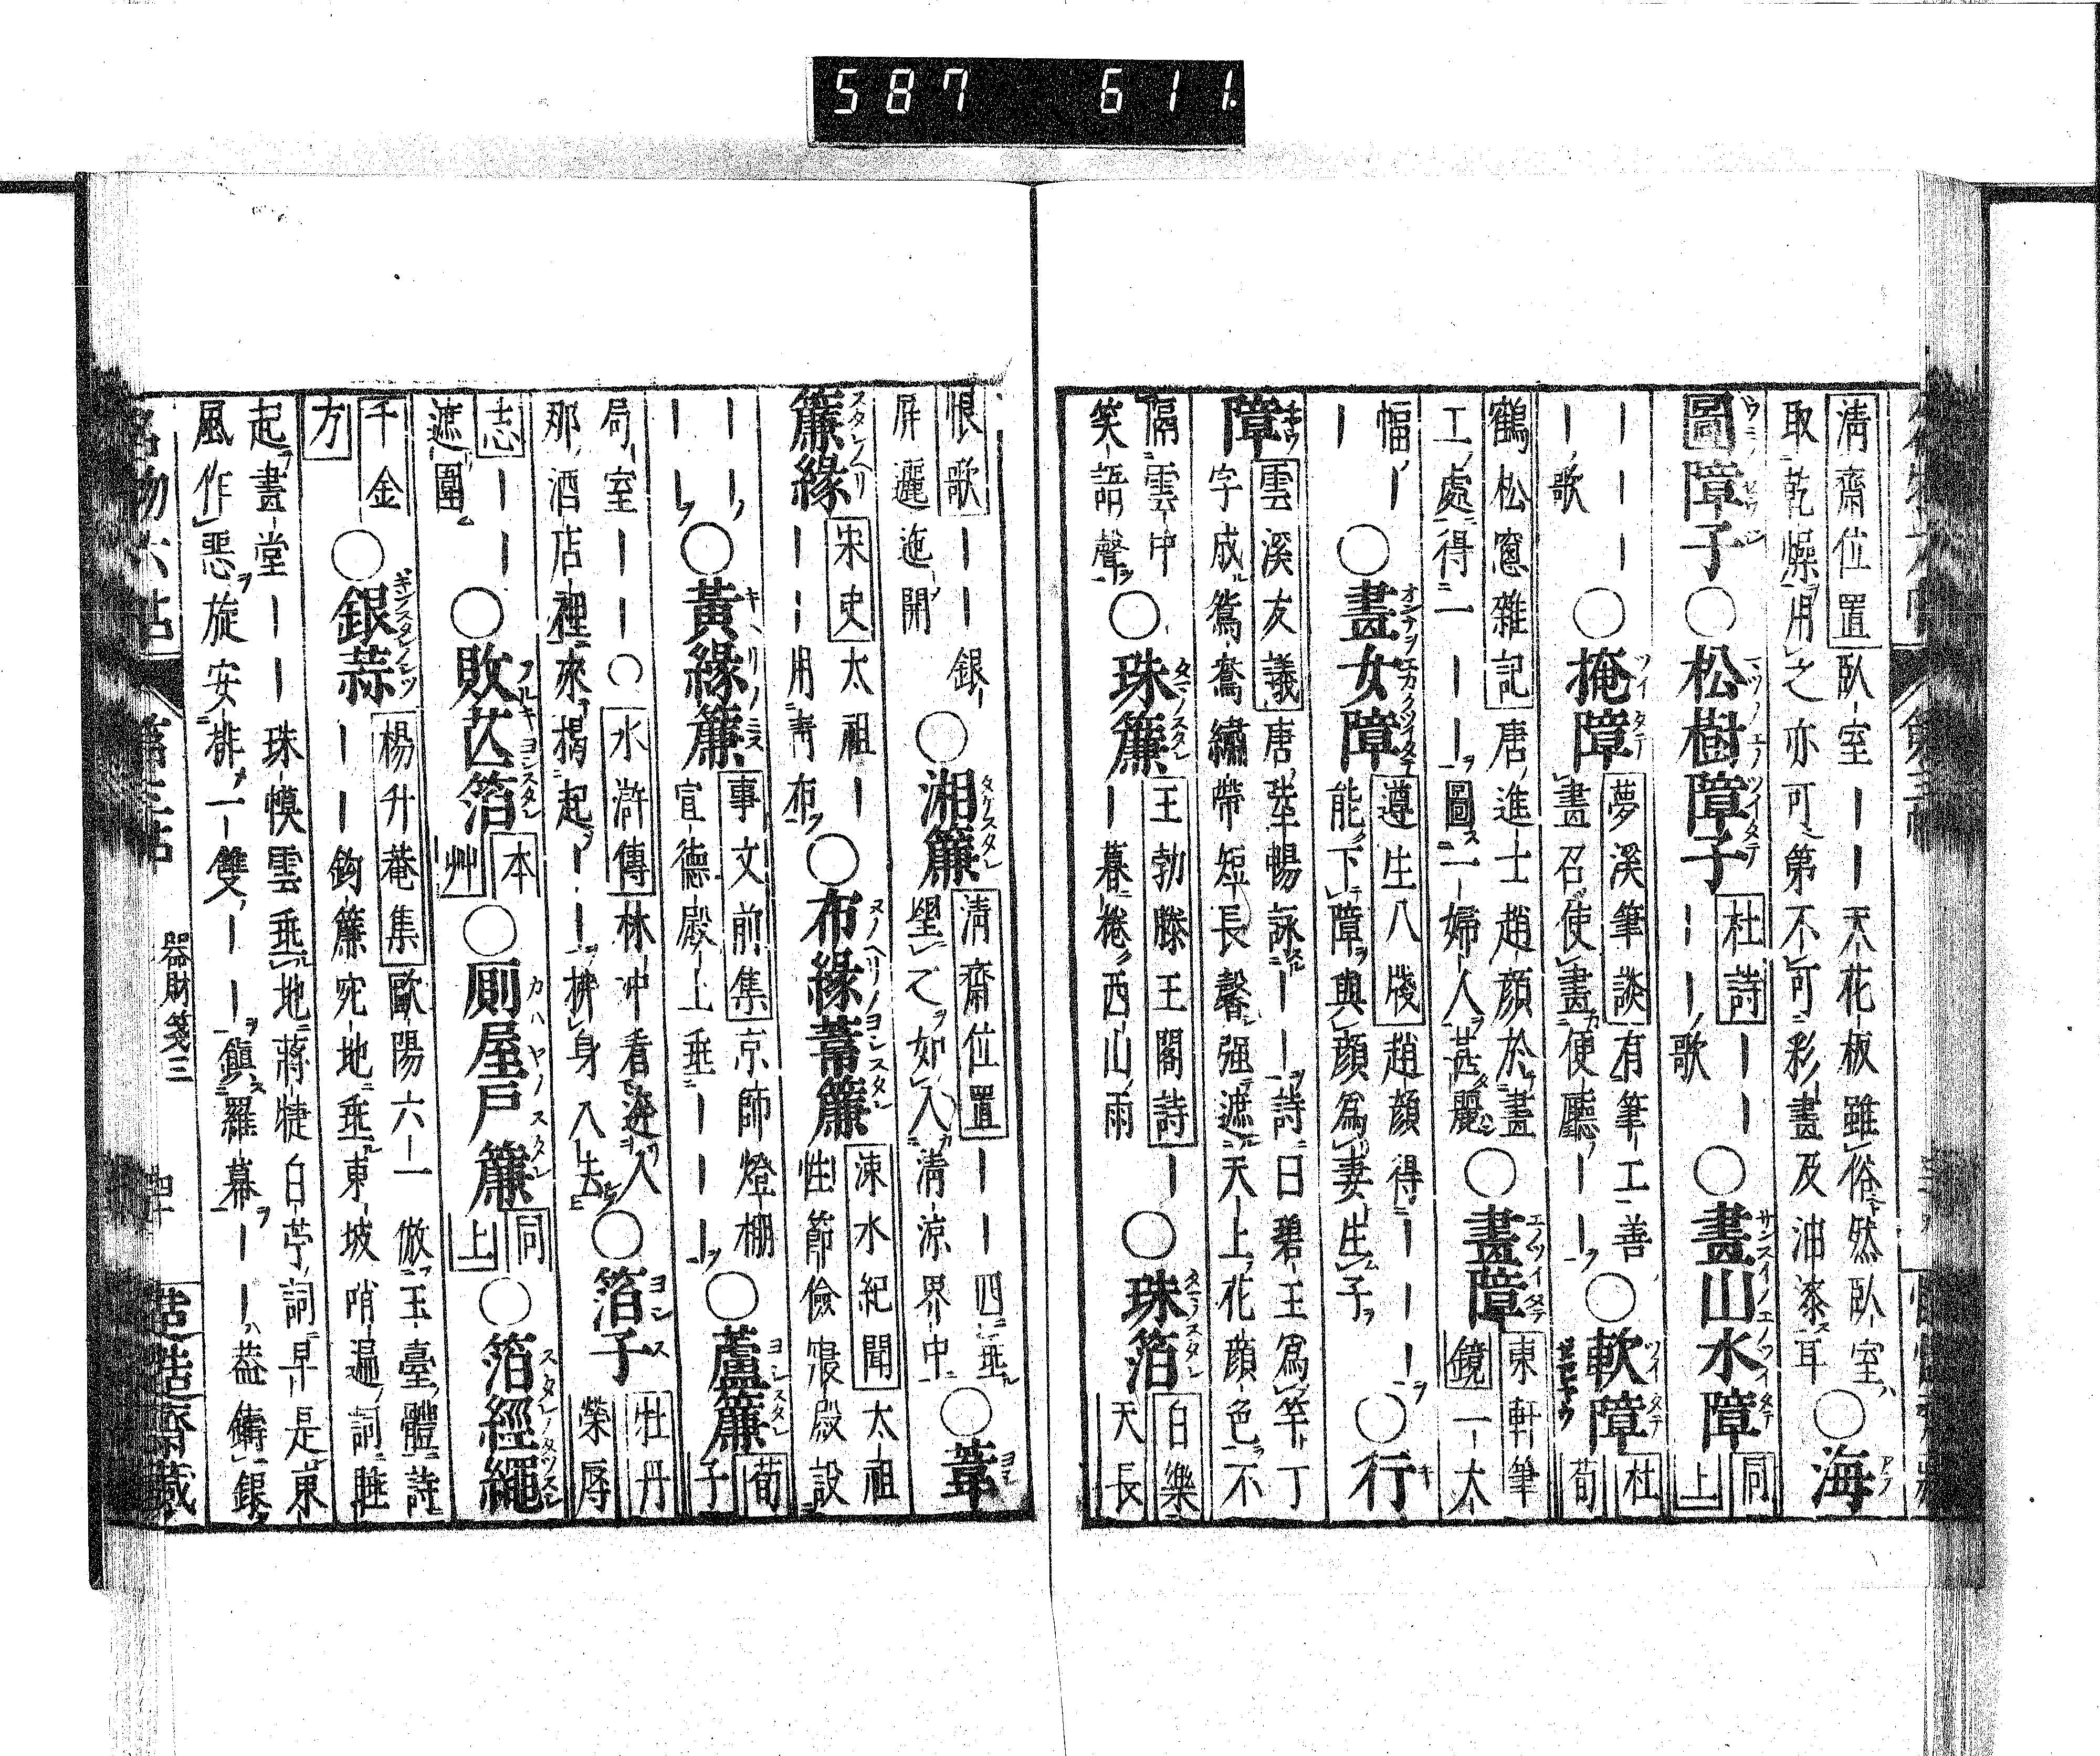 587 611
清齋位置臥室｜｜天花板雖俗然臥室
取乾燥用之亦可第不可彩畫及油漆耳○海
圖障子○松樹障子杜詩｜｜｜｜歌○畫山水障同上
｜｜｜｜歌○掩障夢溪筆談有筆工善畫召使畫便廳｜｜○軟障杜荀
鶴松窓雜記唐進士趙顔於畫
工處得一｜｜圖一婦人甚麗○畫障東軒筆鏡一大
幅｜｜○畫女障遵生八牋趙顔得｜｜｜能下障與顔爲妻生子○行
障雲溪友議唐暢詠｜｜詩曰碧玉爲竿丁
字成鴛鴦繡帶短長馨强遮天上花顔色不
隔雲中笑語聲○珠簾王勃滕王閣詩｜｜暮捲西山雨○珠箔白樂天長
恨歌｜｜銀屏邐迤開○湘簾清齋位置｜｜四垂望之如入清涼界中○葦
簾緣宋史太祖｜｜｜用青布○布緣葦簾涑水紀聞太祖性節儉寢殿設
｜｜｜｜○黃緣簾事文前集京師燈棚宣德殿上垂｜｜｜○蘆簾荀子
局室｜｜○水滸傳林冲看迯人
那酒店裡來揭起｜｜挵身入去○箔子牡丹榮辱
志｜｜遮圍○敗芒箔本艸○厠屋戸簾同上○箔經繩
千金方○銀蒜楊升菴集歐陽六一倣玉臺體詩
｜｜｜鈎簾宛地垂東坡哨遍詞睡
起畫堂｜｜珠幙雲垂地蔣捷白苧詞早是東
風作惡旋安排一雙｜｜鎮羅幕｜｜葢鑄銀
名物六帖 第三帖 器財箋三